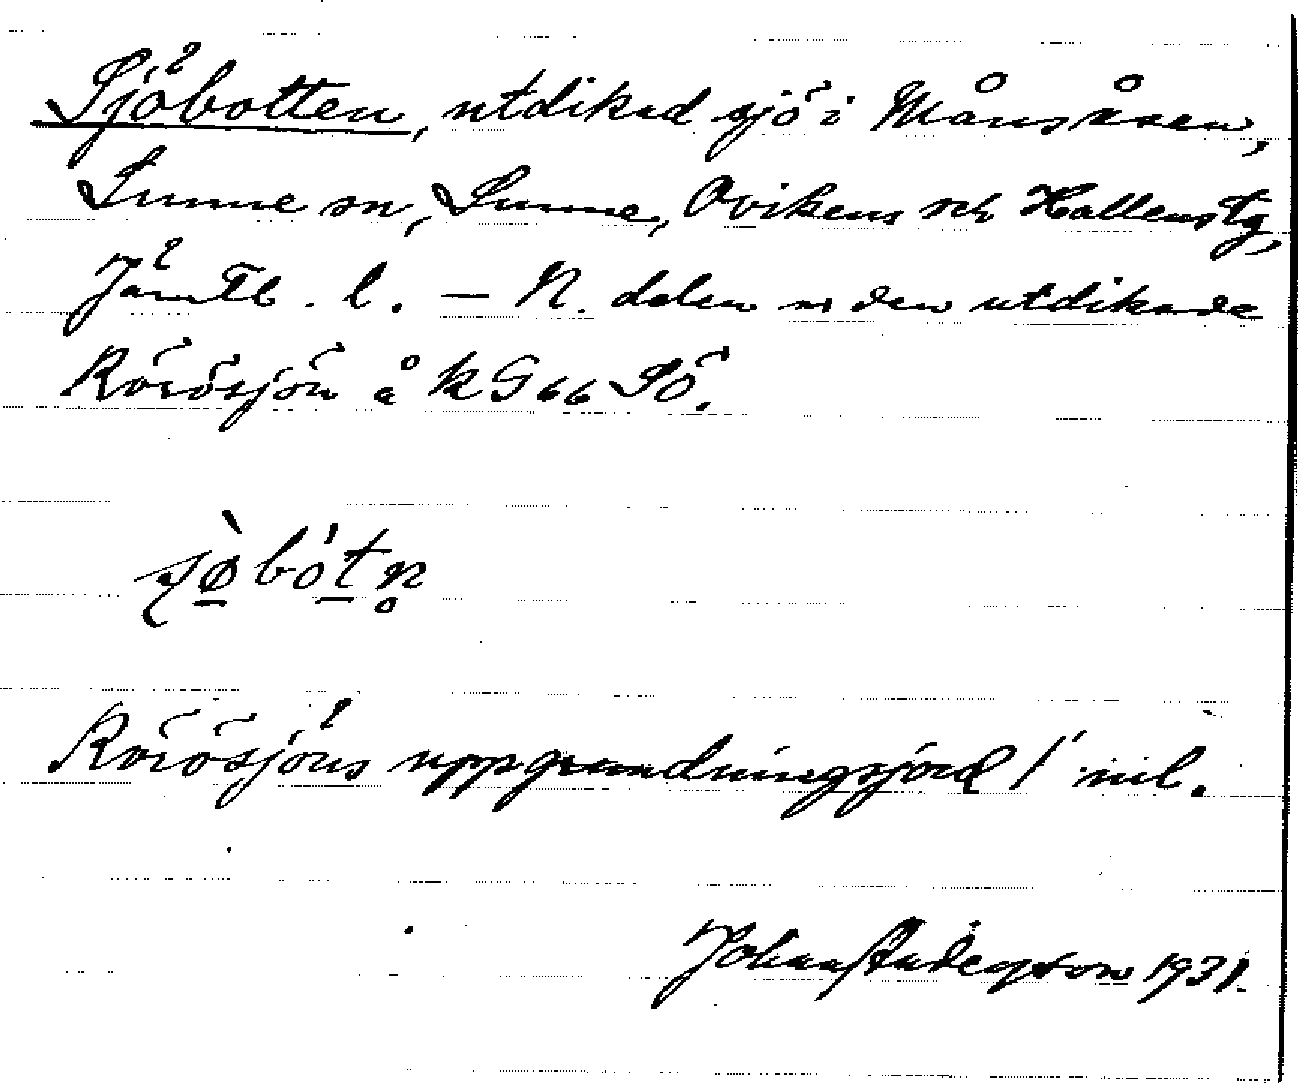 Sjöbotten, utdikad sjö i Månsåsen,
Sunne sn, Sunne, Ovikens och Hallens tg,
Jämtl. l. — N. delen av den utdikade
Rörösjön å k G 66 SÖ.
sø̀bótn̥
Rörösjöns uppgrundningsjord /
Johan Anderson 1931.